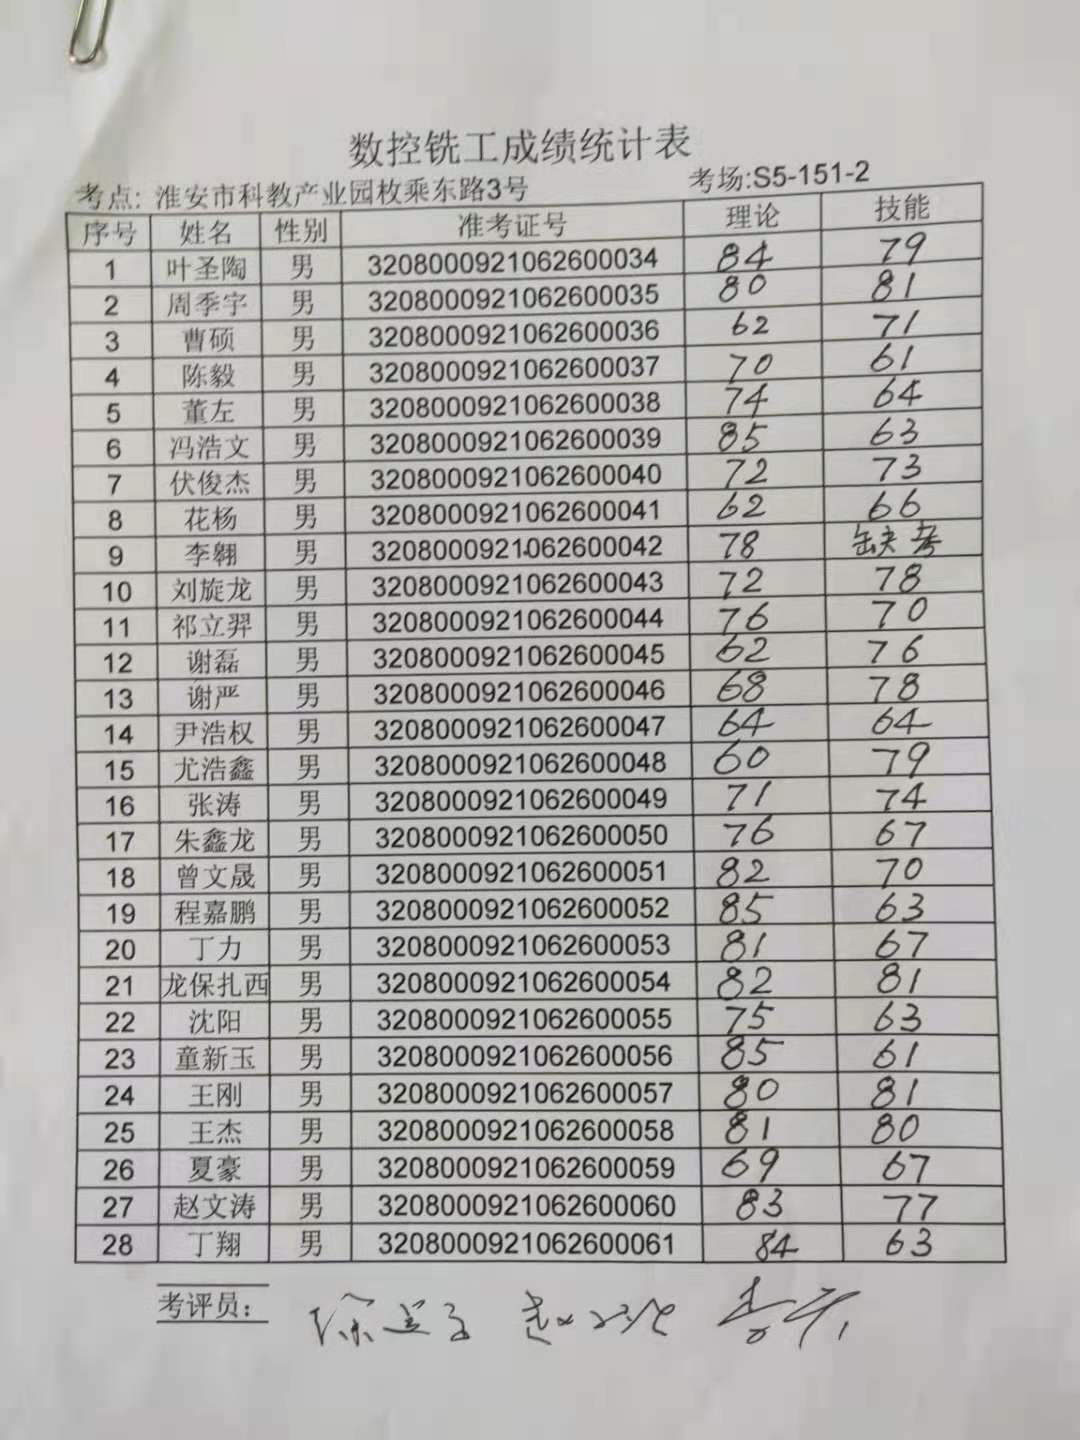 数控铣工成绩统计表
考点: 淮安市科教产业园枚乘东路3号 考场:S5-151-2
序号 姓名 性别 准考证号 理论 技能
1 叶圣陶 男 3208000921062600034 84 79
2 周季宇 男 3208000921062600035 80 81
3 曹硕 男 3208000921062600036 62 71
4 陈毅 男 3208000921062600037 70 61
5 董左 男 3208000921062600038 74 64
6 冯浩文 男 3208000921062600039 85 63
7 伏俊杰 男 3208000921062600040 72 73
8 花杨 男 3208000921062600041 62 66
9 李翱 男 3208000921062600042 78 缺考
10 刘旋龙 男 3208000921062600043 72 78
11 祁立羿 男 3208000921062600044 76 70
12 谢磊 男 3208000921062600045 62 76
13 谢严 男 3208000921062600046 68 78
14 尹浩权 男 3208000921062600047 64 64
15 尤浩鑫 男 3208000921062600048 60 79
16 张涛 男 3208000921062600049 71 74
17 朱鑫龙 男 3208000921062600050 76 67
18 曾文晟 男 3208000921062600051 82 70
19 程嘉鹏 男 3208000921062600052 85 63
20 丁力 男 3208000921062600053 81 67
21 龙保扎西 男 3208000921062600054 82 81
22 沈阳 男 3208000921062600055 75 63
23 童新玉 男 3208000921062600056 85 61
24 王刚 男 3208000921062600057 80 81
25 王杰 男 3208000921062600058 81 80
26 夏豪 男 3208000921062600059 69 67
27 赵文涛 男 3208000921062600060 83 77
28 丁翔 男 3208000921062600061 84 63
考评员: